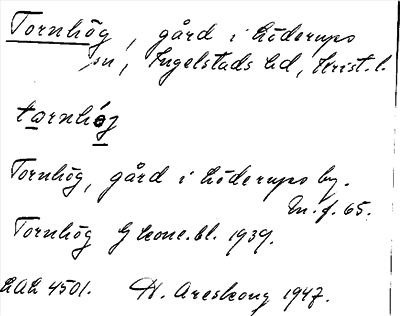 Tornhög, gård i Löderups
sn, Ingelstads hd, Krist. l.
tornhög
Tornhög, gård i Löderups by.
m. f. 65.
Tornhög G Ekon.bl. 1939.
LAL 4501. H. Areskoug 1947.